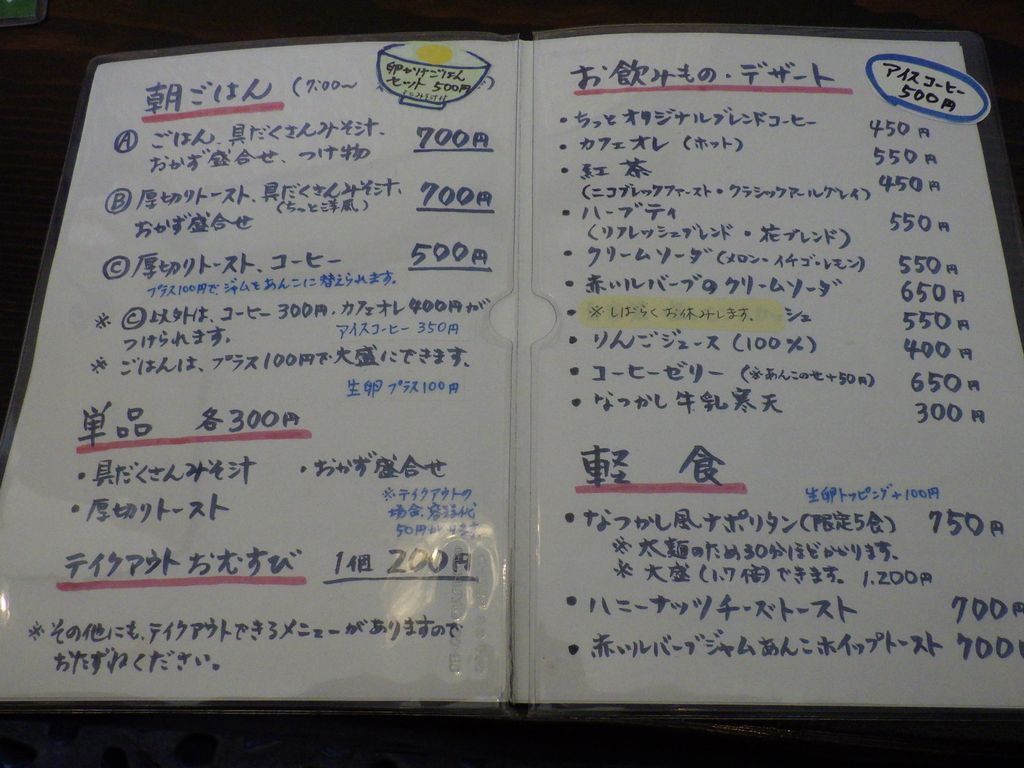 朝ごはん (7:00〜 )
卵かけごはん
セット 500円
Ⓐ ごはん、具だくさんみそ汁、 700円
おかず盛合せ、つけ物
Ⓑ 厚切りトースト、具だくさんみそ汁、 700円
(ちっと洋風)
おかず盛合せ
Ⓒ 厚切りトースト、コーヒー 500円
プラス100円で、ジャムをあんこに替えられます。
※ Ⓒ以外は、コーヒー300円、カフェオレ400円が
つけられます。 アイスコーヒー 350円
※ ごはんは、プラス100円で大盛にできます。
生卵 プラス100円
単品 各300円
・具だくさんみそ汁 ・おかず盛合せ
・厚切りトースト
※テイクアウトの
場合、容器代
50円かかります
テイクアウトおむすび 1個 200円
※その他にも、テイクアウトできるメニューがありますので
おたずねください。
お飲みもの・デザート
アイスコーヒー
500円
・ちっとオリジナルブレンドコーヒー 450円
・カフェオレ (ホット) 550円
・紅茶 450円
(ニコブレックファースト・クラシックアールグレイ)
・ハーブティ 550円
(リフレッシュブレンド・花ブレンド)
・クリームソーダ(メロン・イチゴ・レモン) 550円
・赤いルバーブのクリームソーダ 650円
・※しばらくお休みします。 シュ 550円
・りんごジュース (100%) 400円
・コーヒーゼリー (※あんこのせ+50円) 650円
・なつかし牛乳寒天 300円
軽食
生卵トッピング+100円
・なつかし風ナポリタン(限定5食) 750円
※ 太麺のため30分ほどかかります。
※ 大盛(1.7倍)できます。 1,200円
・ハニーナッツチーズトースト 700円
・赤いルバーブジャムあんこホイップトースト 700